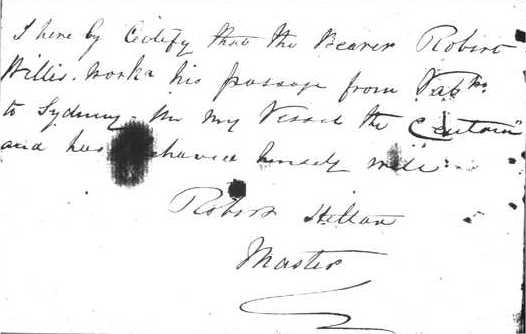 I here by Certify that the Bearer Robert
Willis. work his passage from
to Sydney. in my Vessel the "Centaur"
and has behaved himself well
Robert Hillan
Master